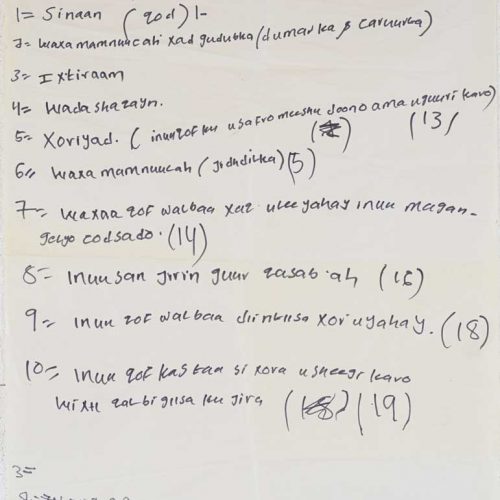 1= Sinaan (qof) 1-
2= waxa mamnuucah xad gudubka (dumarka & caruurka)
3= Ixtiraam
4= wadashaqayn.
5= Xoriyad. (inuu qof ku u safro meeshu doono ama u guuri karo) (13)
6= waxa mamnuucah (jidhdilka) (5)
7= waxaa qof walbaa xaq u leeyahay inuu magan-
gelyo codsado. (14)
8= inuusan jirin guur qasab ah (16)
9= inuu qof walbaa diintiisa xor u yahay. (18)
10= inuu qof kastaa si xora u sheegi karo
wixii qalbigiisa ku jira (19)
3=